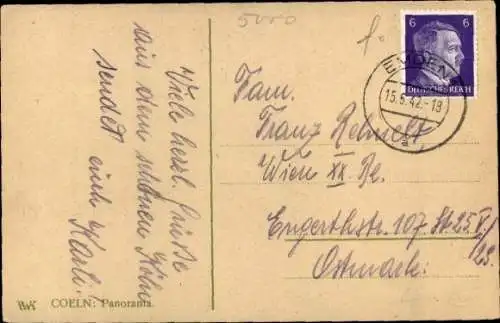 5000
6 6
DEUTSCHES REICH
EMDEN
15.5.42.-18
a
Viele herzl. Grüße
aus dem schönen Köln
sendet euch Karli.
Fam.
Franz Rehnelt
Wien XX Be.
Engerthstr. 107 St 25 V/23.
Ostmark.
COELN: Panorama.